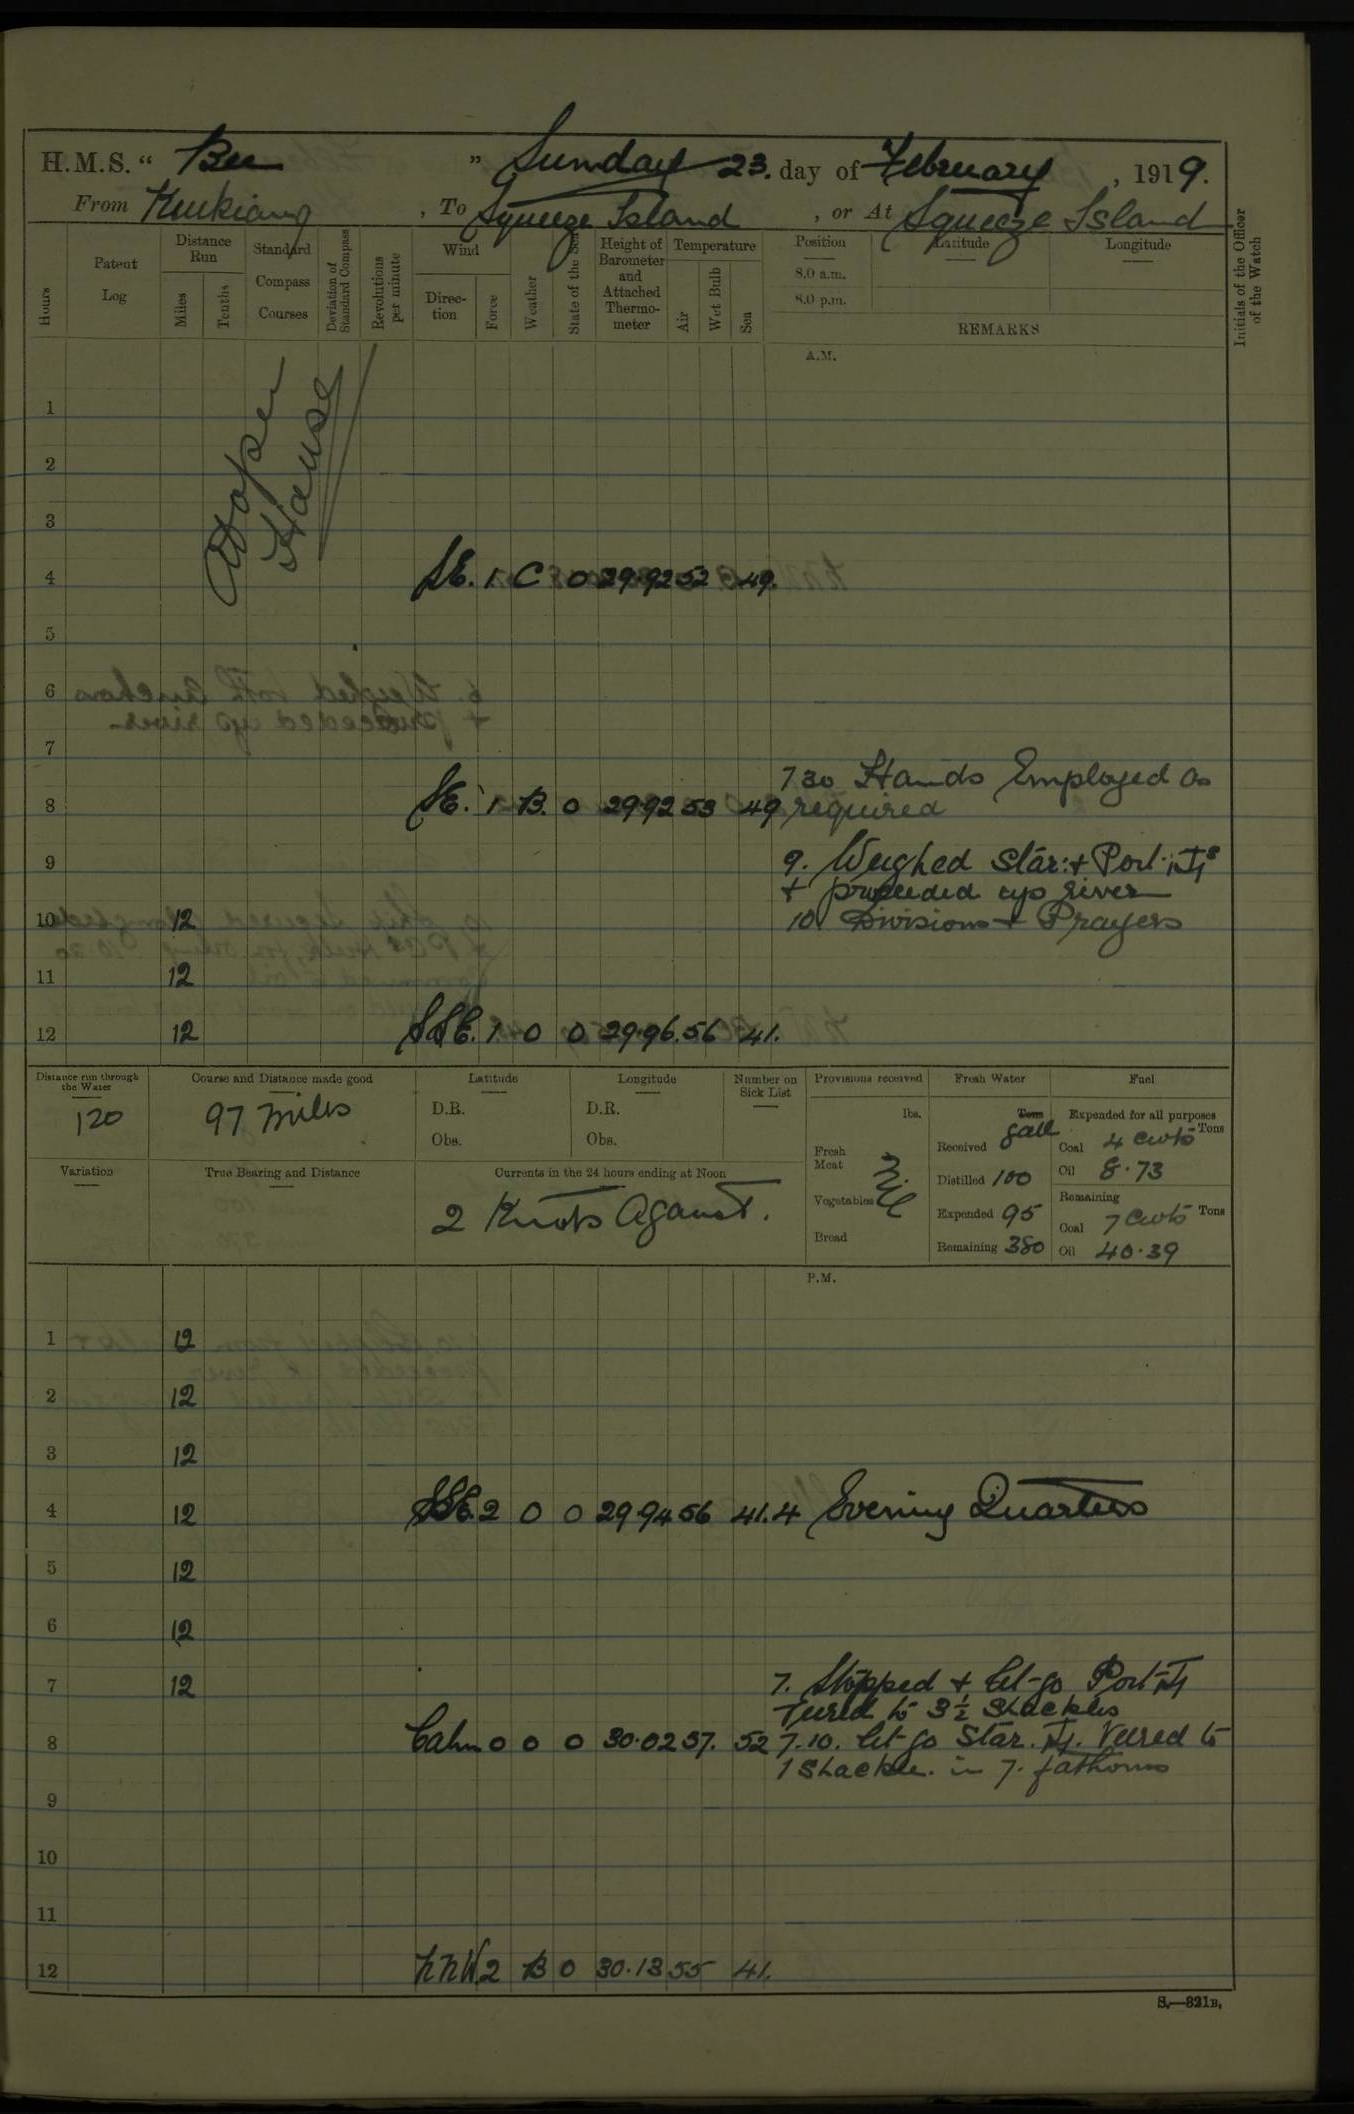 H.M.S. “ Bee ” Sunday 23. day of February , 1919.
From Kiukiang , To Squeeze Island , or At Squeeze Island
Hours
Patent Log
Distance Run
Miles
Tenths
Standard Compass Courses
Deviation of Standard Compass
Revolutions per minute
Wind
Direction
Force
Weather
State of the Sea
Height of Barometer and Attached Thermometer
Temperature
Air
Wet Bulb
Sea
Position
8.0 a.m.
8.0 p.m.
Latitude
Longitude
REMARKS
Initials of the Officer of the Watch
A.M.
1
2
3
4 SE. 1 C 0 29.92 52 49.
5
6
7
7 30 Hands Employed as
8 SE. 1 B. 0 29.92 53 49 required
9 9. Weighed Star: + Port
+ proceeded up river
10 12 10 Divisions + Prayers
11 12
12 12 SSE. 1 0 0 29.96. 56 41.
Distance run through the Water
120
Course and Distance made good
97 miles
Latitude
D.R.
Obs.
Longitude
D.R.
Obs.
Number on Sick List
Provisions received
lbs.
Fresh Meat
Vegetables
Bread
Nil
Fresh Water
Tons
gall
Received
Distilled 100
Expended 95
Remaining 380
Fuel
Expended for all purposes
Coal 4 cwts Tons
Oil 8.73
Remaining
Coal 7 cwts Tons
Oil 40.39
Variation
True Bearing and Distance
Currents in the 24 hours ending at Noon
2 Knots Against.
P.M.
1 12
2 12
3 12
4 12 SSE. 2 0 0 29.94 56 41. 4 Evening Quarters
5 12
6 12
7 12 7. Stopped + let-go Port
to 3½ Shackles
8 Calm 0 0 0 30.02 57. 52 7.10. let-go Star. Veered to
1 Shackle. in 7. fathoms
9
10
11
12 NNW. 2 B 0 30.13 55 41.
S.—321B.